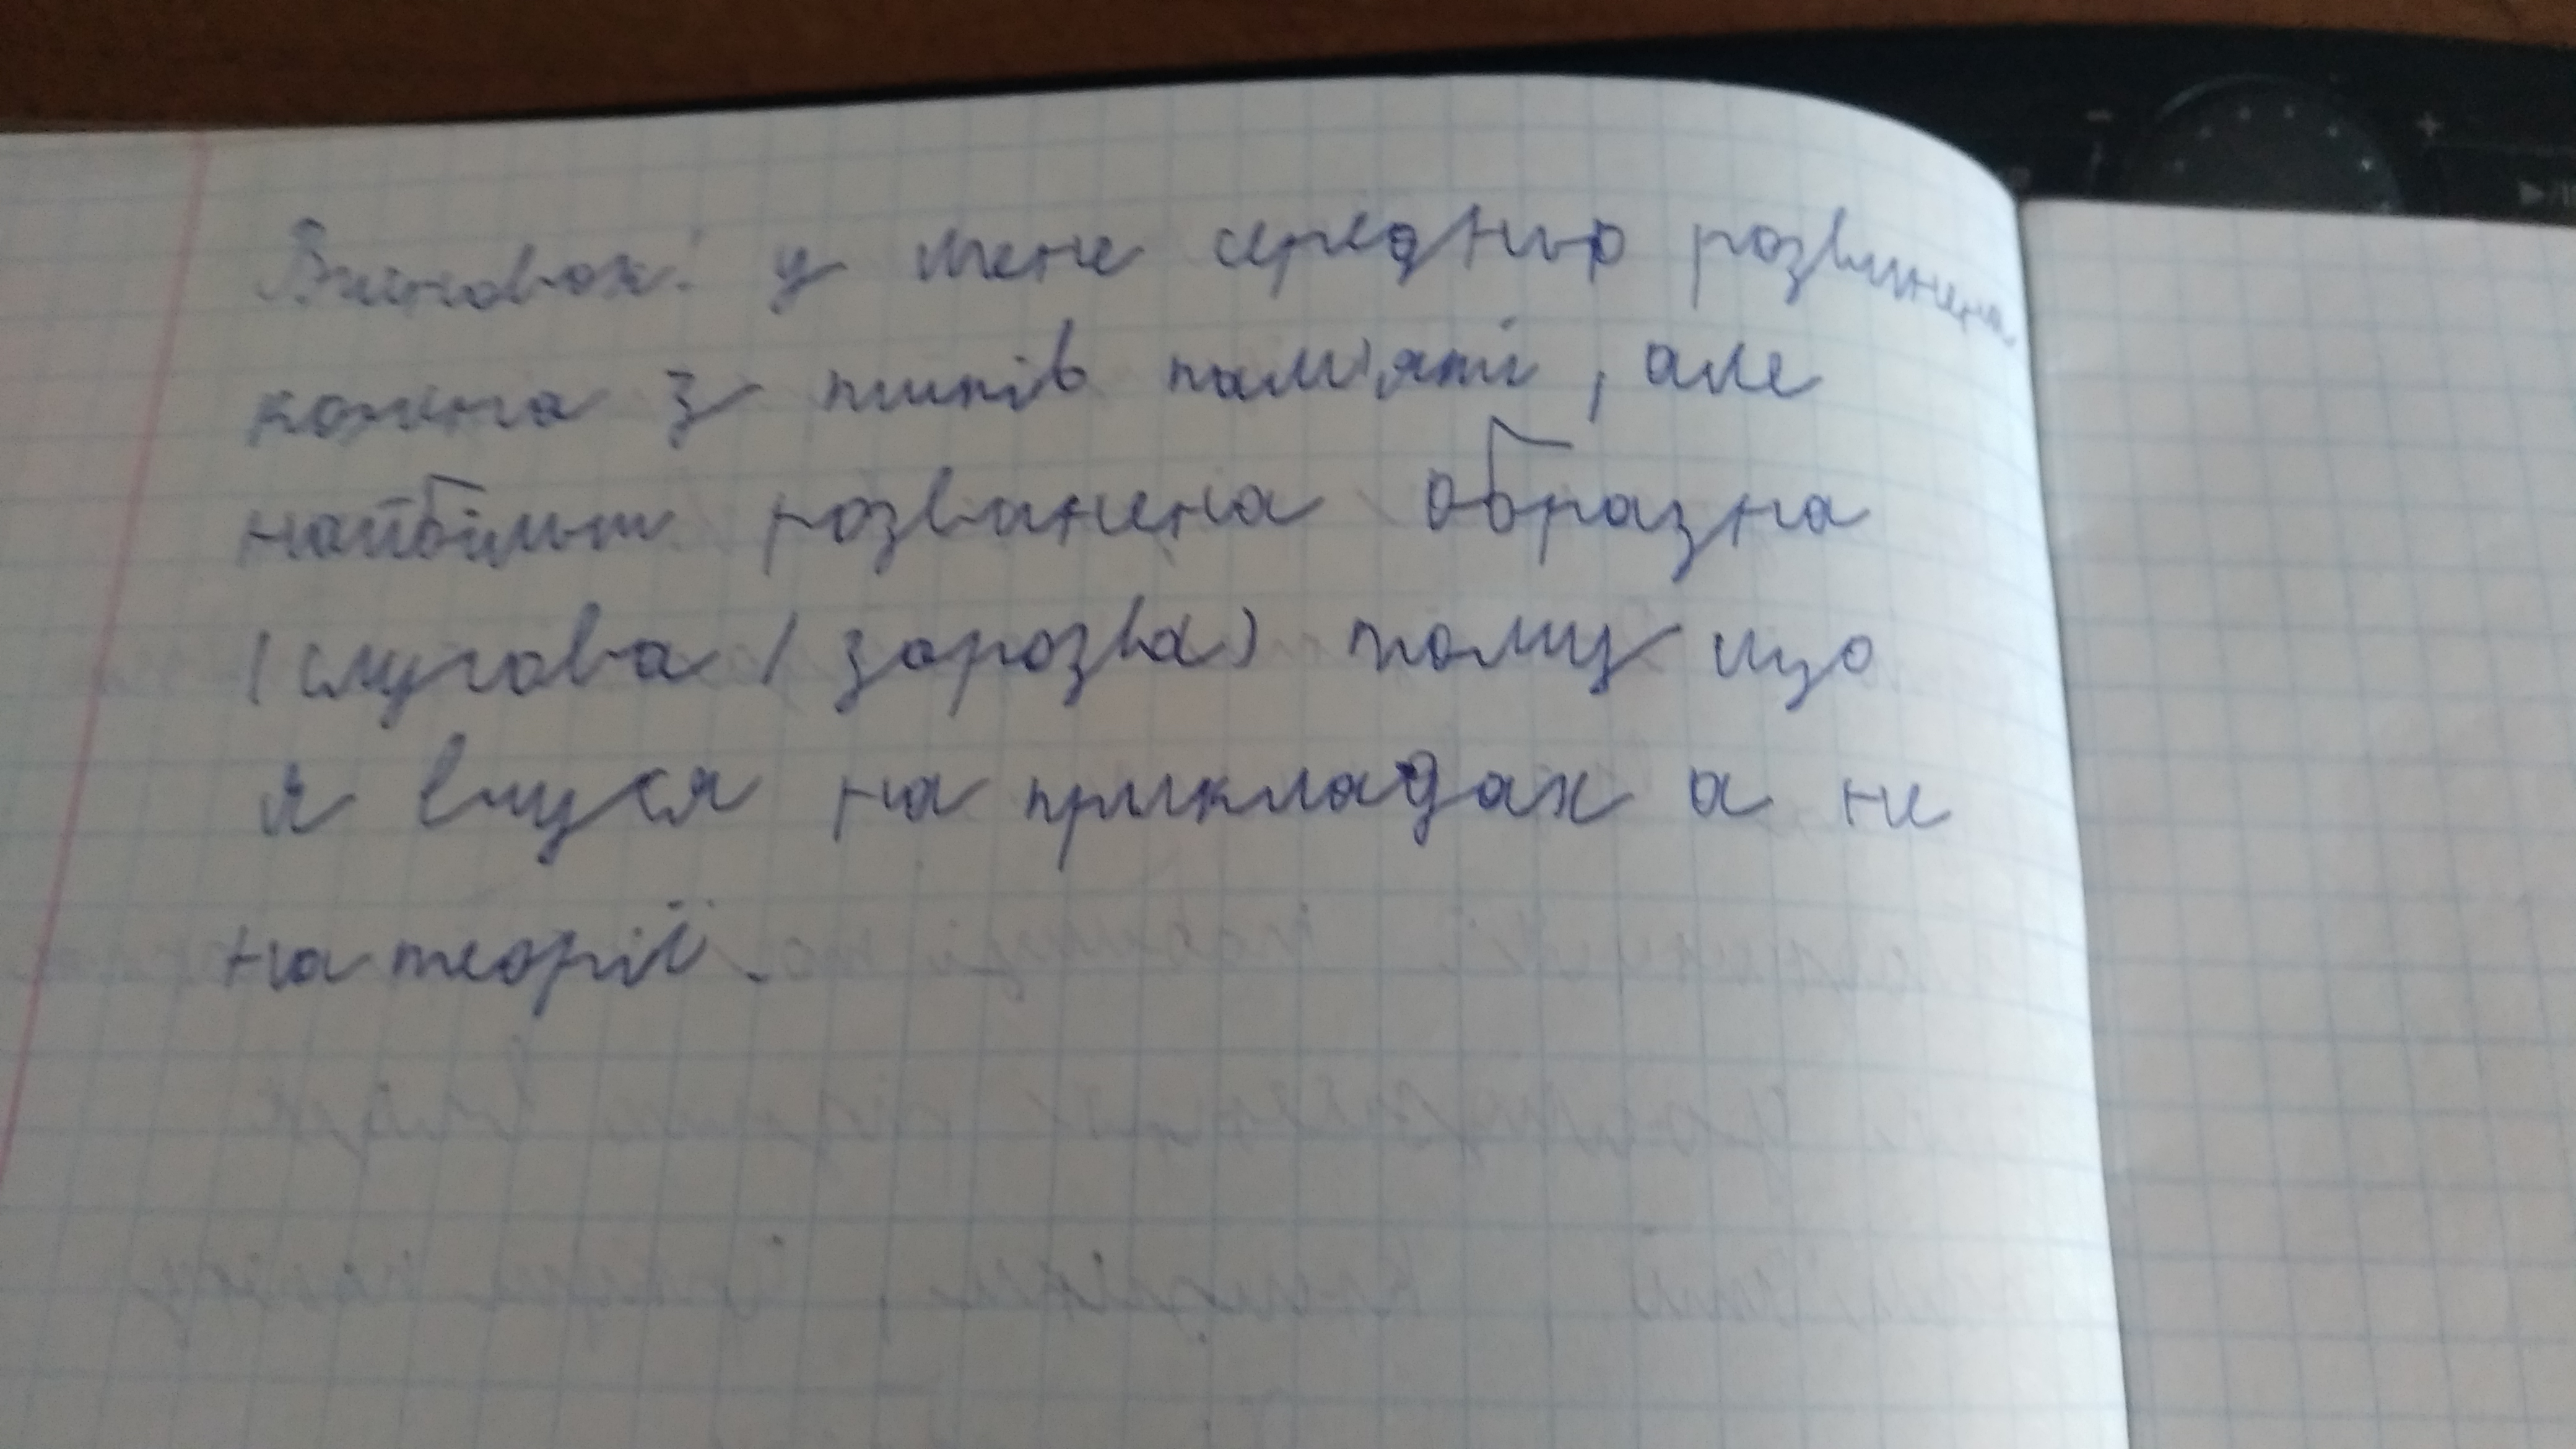 Висновок: у мене середньо розвинена
кожна з типів пам'яті, але
найбільш розванена образна
(слугова / зорозва) тому що
я вчуся на прикладах а не
на теорії.